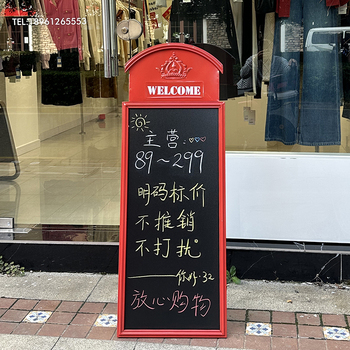 TEL:18961265553
WELCOME
主营:
89~299
明码标价
不推销
不打扰
放心购物